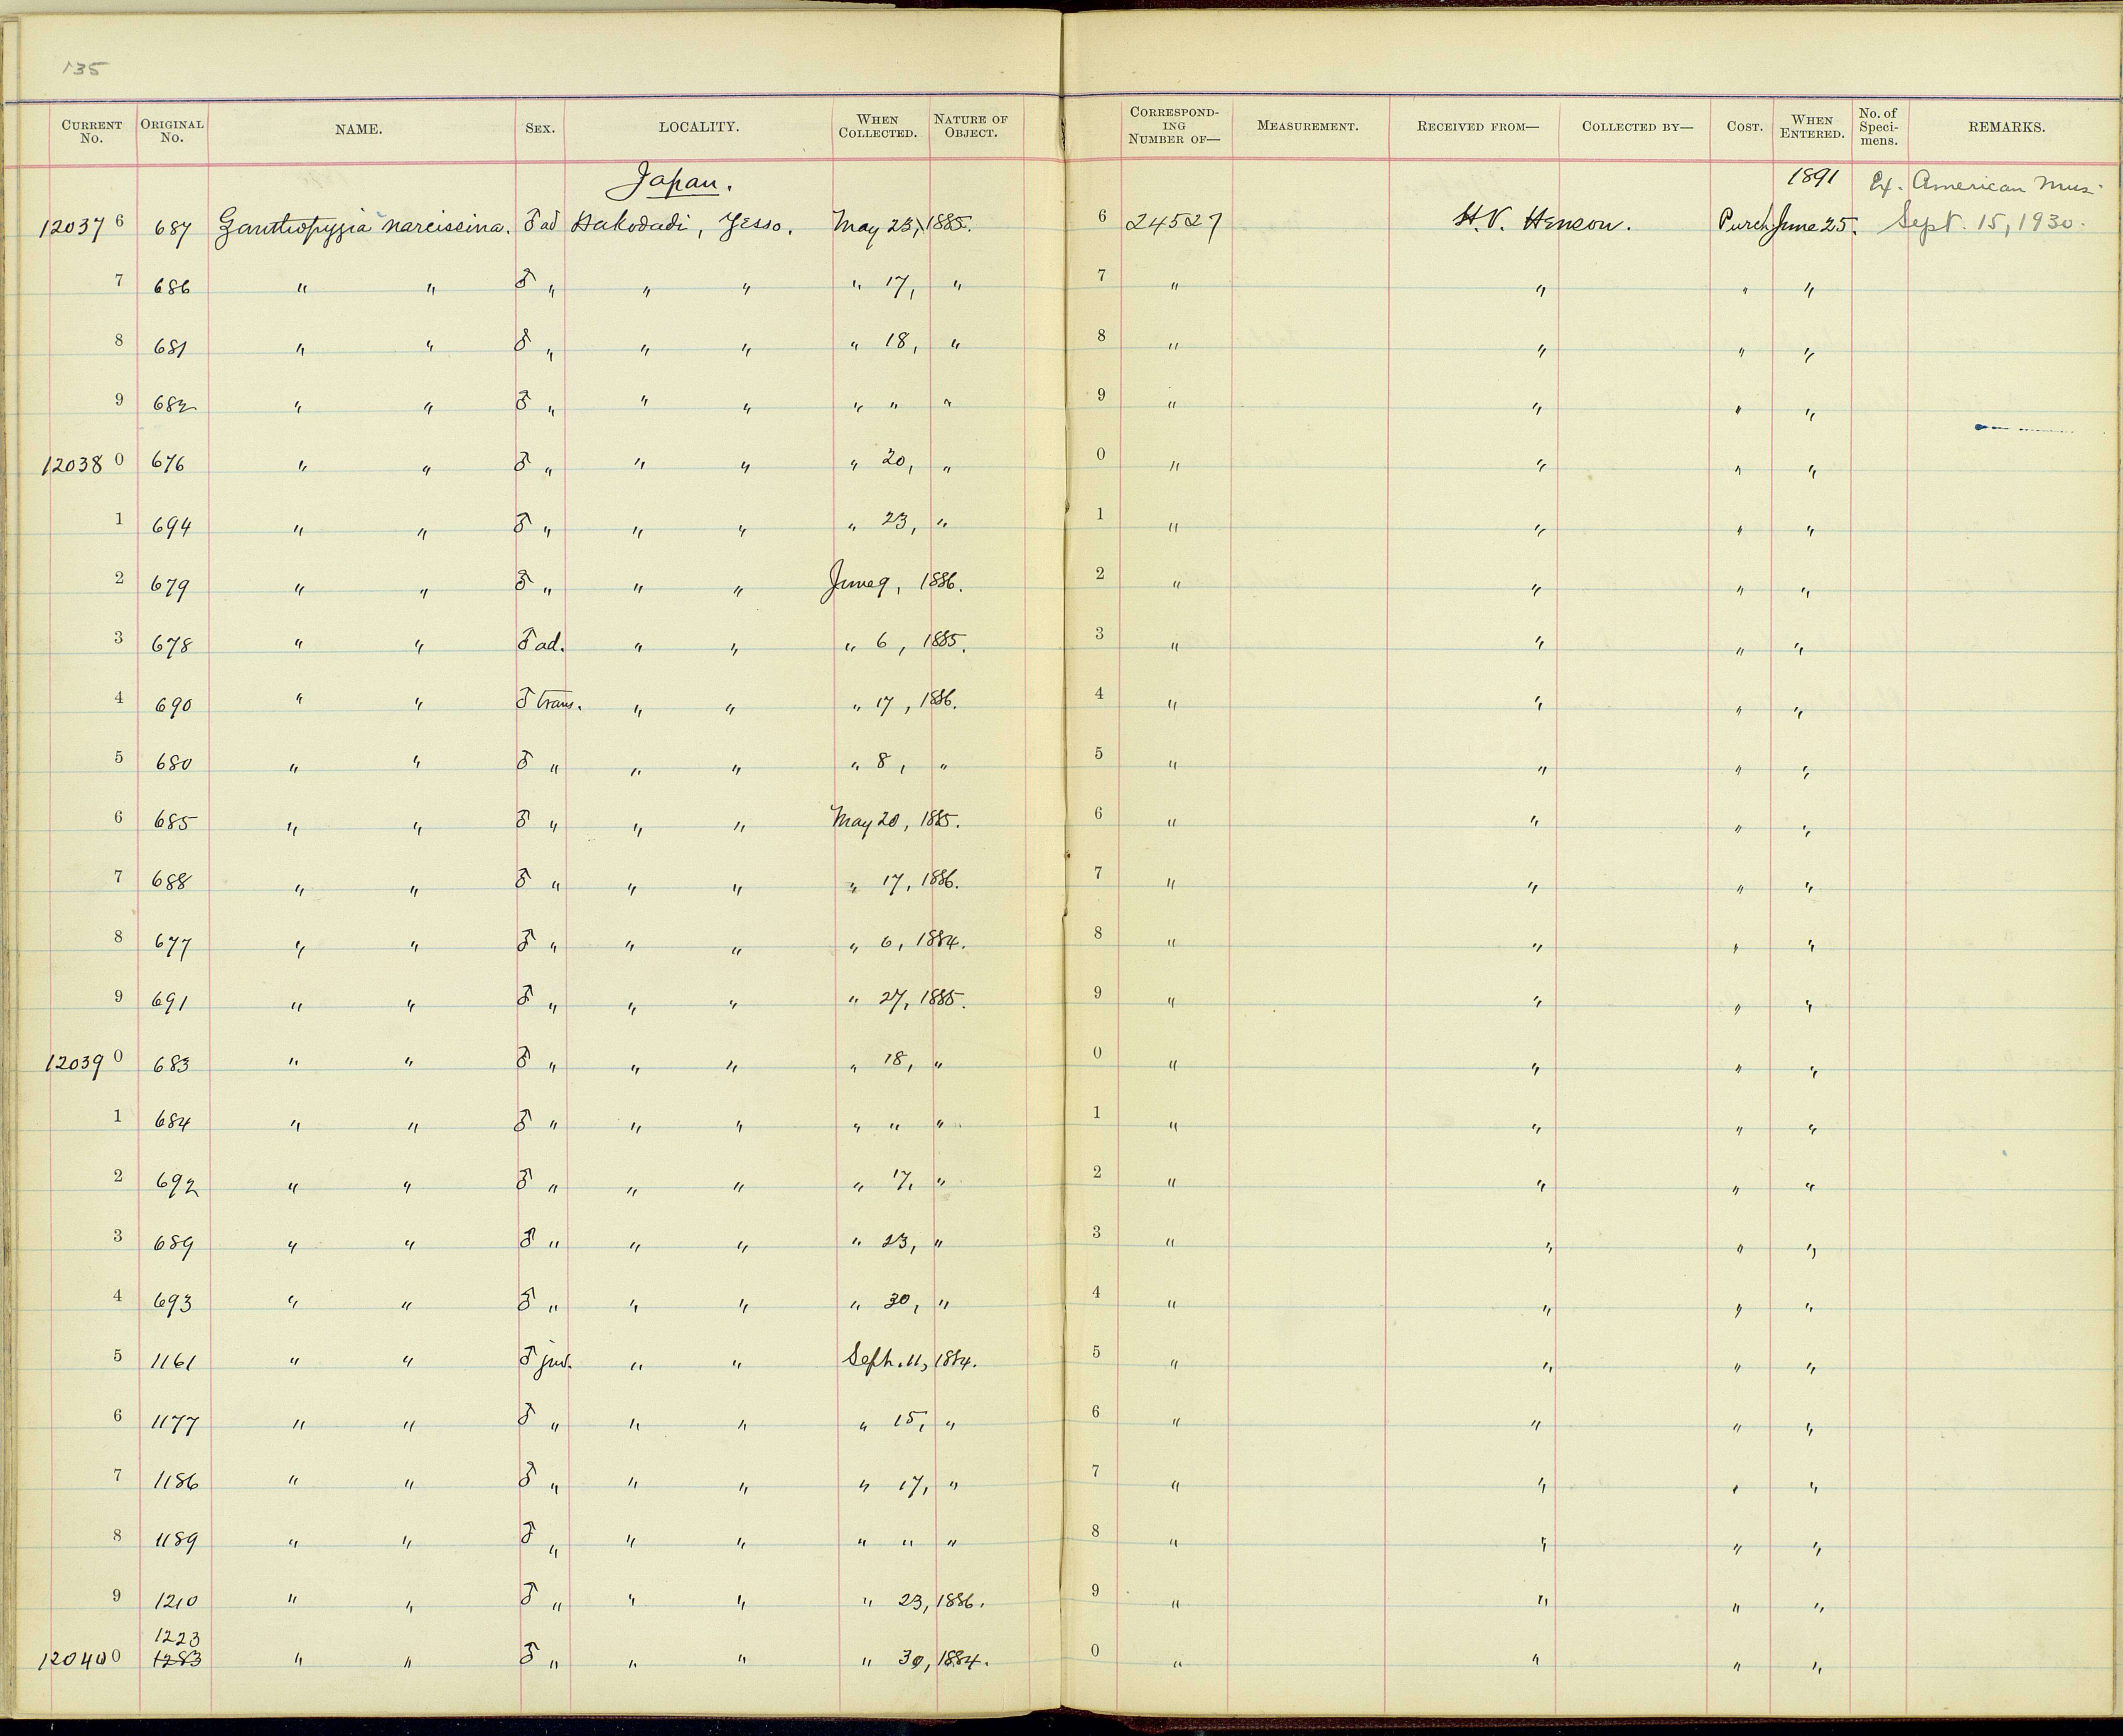 135
CURRENT No. ORIGINAL No. NAME. SEX. LOCALITY. WHEN COLLECTED. NATURE OF OBJECT. CORRESPONDING NUMBER OF— MEASUREMENT. RECEIVED FROM— COLLECTED BY— COST. WHEN ENTERED. No. of Specimens. REMARKS.
Japan. 1891 Ex. American Mus.
12037 6 687 Zanthopygia narcissina. ♂ ad Hakodadi, Yesso. May 23, 1885. 6 24527 H.V. Henson. Purch June 25. Sept. 15, 1930.
7 686 " " ♂ " " " " 17, " 7 " " " "
8 681 " " ♂ " " " " 18, " 8 " " " "
9 682 " " ♂ " " " " " " 9 " " " "
12038 0 676 " " ♂ " " " " 20, " 0 " " " "
1 694 " " ♂ " " " " 23, " 1 " " " "
2 679 " " ♂ " " " June 9, 1886. 2 " " " "
3 678 " " ♂ ad. " " " 6, 1885. 3 " " " "
4 690 " " ♂ trans. " " " 17, 1886. 4 " " " "
5 680 " " ♂ " " " " 8, " 5 " " " "
6 685 " " ♂ " " " May 20, 1885. 6 " " " "
7 688 " " ♂ " " " " 17, 1886. 7 " " " "
8 677 " " ♂ " " " " 6, 1884. 8 " " " "
9 691 " " ♂ " " " " 27, 1885. 9 " " " "
12039 0 683 " " ♂ " " " " 18, " 0 " " " "
1 684 " " ♂ " " " " " " 1 " " " "
2 692 " " ♂ " " " " 17, " 2 " " " "
3 689 " " ♂ " " " " 23, " 3 " " " "
4 693 " " ♂ " " " " 30, " 4 " " " "
5 1161 " " ♂ juv. " " Sept. 11, 1884. 5 " " " "
6 1177 " " ♂ " " " " 15, " 6 " " " "
7 1186 " " ♂ " " " " 17, " 7 " " " "
8 1189 " " ♂ " " " " " " 8 " " " "
9 1210 " " ♂ " " " " 23, 1886. 9 " " " "
1223
12040 0 1283 " " ♂ " " " " 30, 1884. 0 " " " "